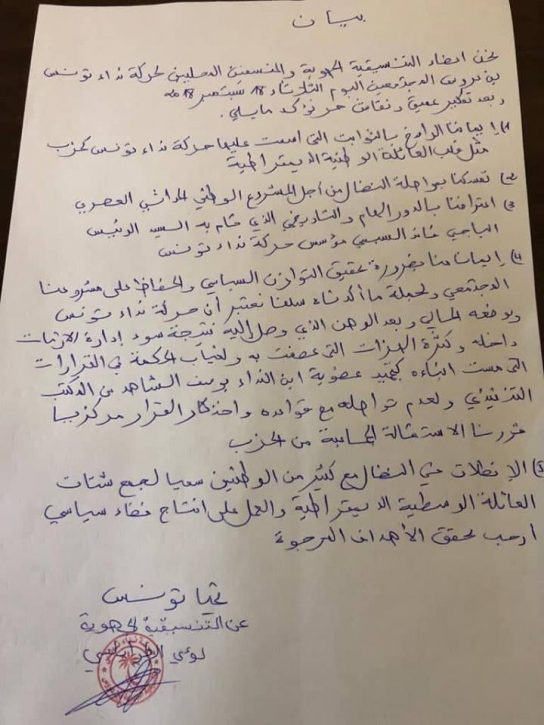 بيان
نحن أعضاء التنسيقية الجهوية والمنسقين المحليين لحركة نداء تونس
بن عروس المجتمعين اليوم الثلاثاء 18 سبتمبر 2018
وبعد تفكير عميق ونقاش حر نؤكد مايلي:
1) إيماننا الراسخ بالثوابت التي انبنت عليها حركة نداء تونس كحزب
مثل قلب العائلة الوطنية الديمقراطية
2) تمسكنا بمواصلة النضال من أجل المشروع الوطني الحداثي العصري
3) اعترافنا بالدور الهام والتاريخي الذي قام به السيد الرئيس
الباجي قائد السبسي مؤسس حركة نداء تونس
4) إيمانا منا بضرورة تحقيق التوازن السياسي والحفاظ على مشروعنا
المجتمعي ولجملة ما أكدناه سلفا نعتبر أن حركة نداء تونس
وبوضعه الحالي وبعد الوهن الذي وصل إليه نتيجة سوء إدارة الأزمات
داخله وكثرة الهزات التي عصفت به ولغياب الحكمة في القرارات
التي مست أبناءه كتجميد عضوية ابن النداء يوسف الشاهد من المكتب
التنفيذي ولعدم تواصله مع قواعده واحتكار القرار مركزيا
قررنا الاستقالة الجماعية من الحزب
5) الانطلاق في النضال مع كثير من الوطنيين سعيا لجمع شتات
العائلة الوسطية الديمقراطية والعمل على انتاج فضاء سياسي
أرحب لتحقق الأهداف المرجوة
تحيا تونس
عن التنسيقية الجهوية
لؤي